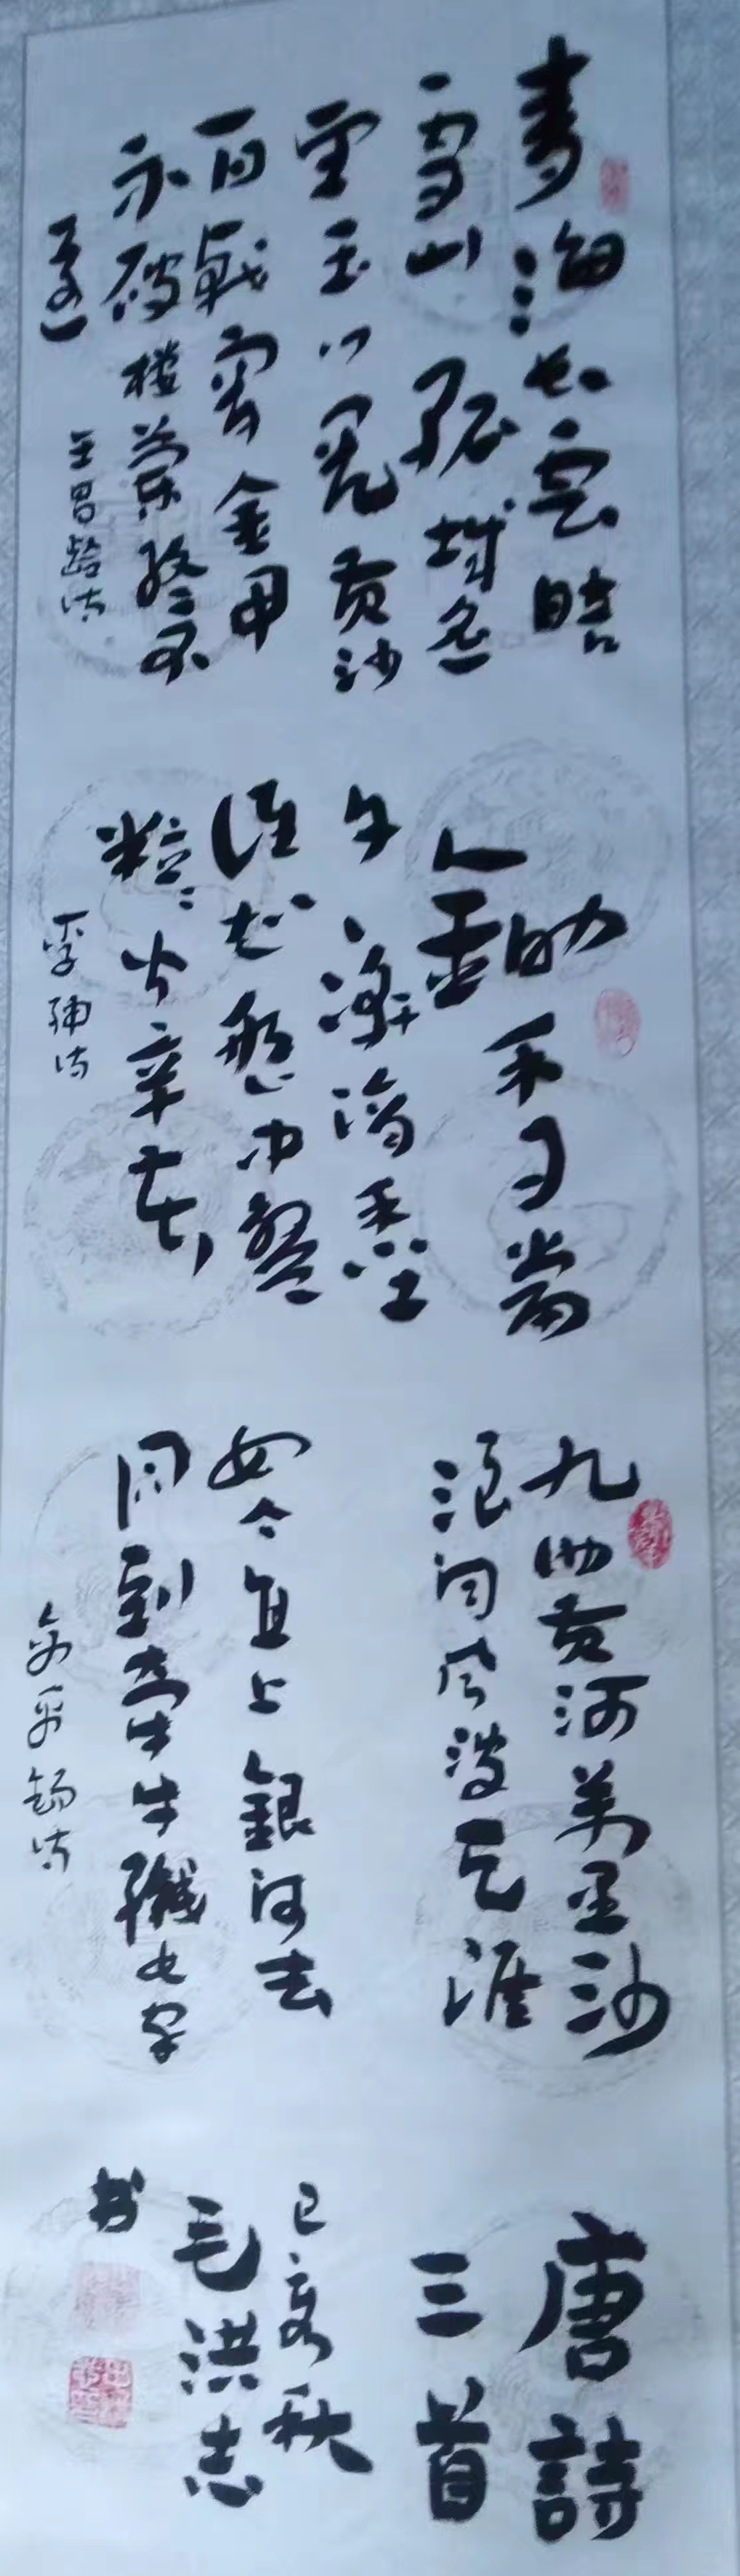 青海长雲暗
雪山孤城遥
望玉门關黄沙
百戰穿金甲
不破樓蘭終不
還
王昌龄诗
鋤禾日當
午汗滴禾下土
谁知盤中餐
粒粒皆辛苦
李绅诗
九曲黄河萬里沙
浪淘风波天涯
如今直上銀河去
同到牽牛織女家
禹锡诗
唐詩
三首
己亥秋
毛洪志
书